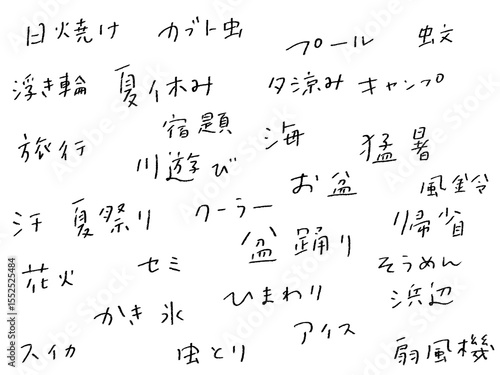 日焼け カブト虫 プール 蚊
浮き輪 夏休み 夕涼み キャンプ
旅行 宿題 海 猛暑
川遊び お盆 風鈴
汗 夏祭り クーラー 盆踊り 帰省
花火 セミ ひまわり そうめん
かき氷 アイス 浜辺
スイカ 虫とり 扇風機
Adobe Stock | #1552525484